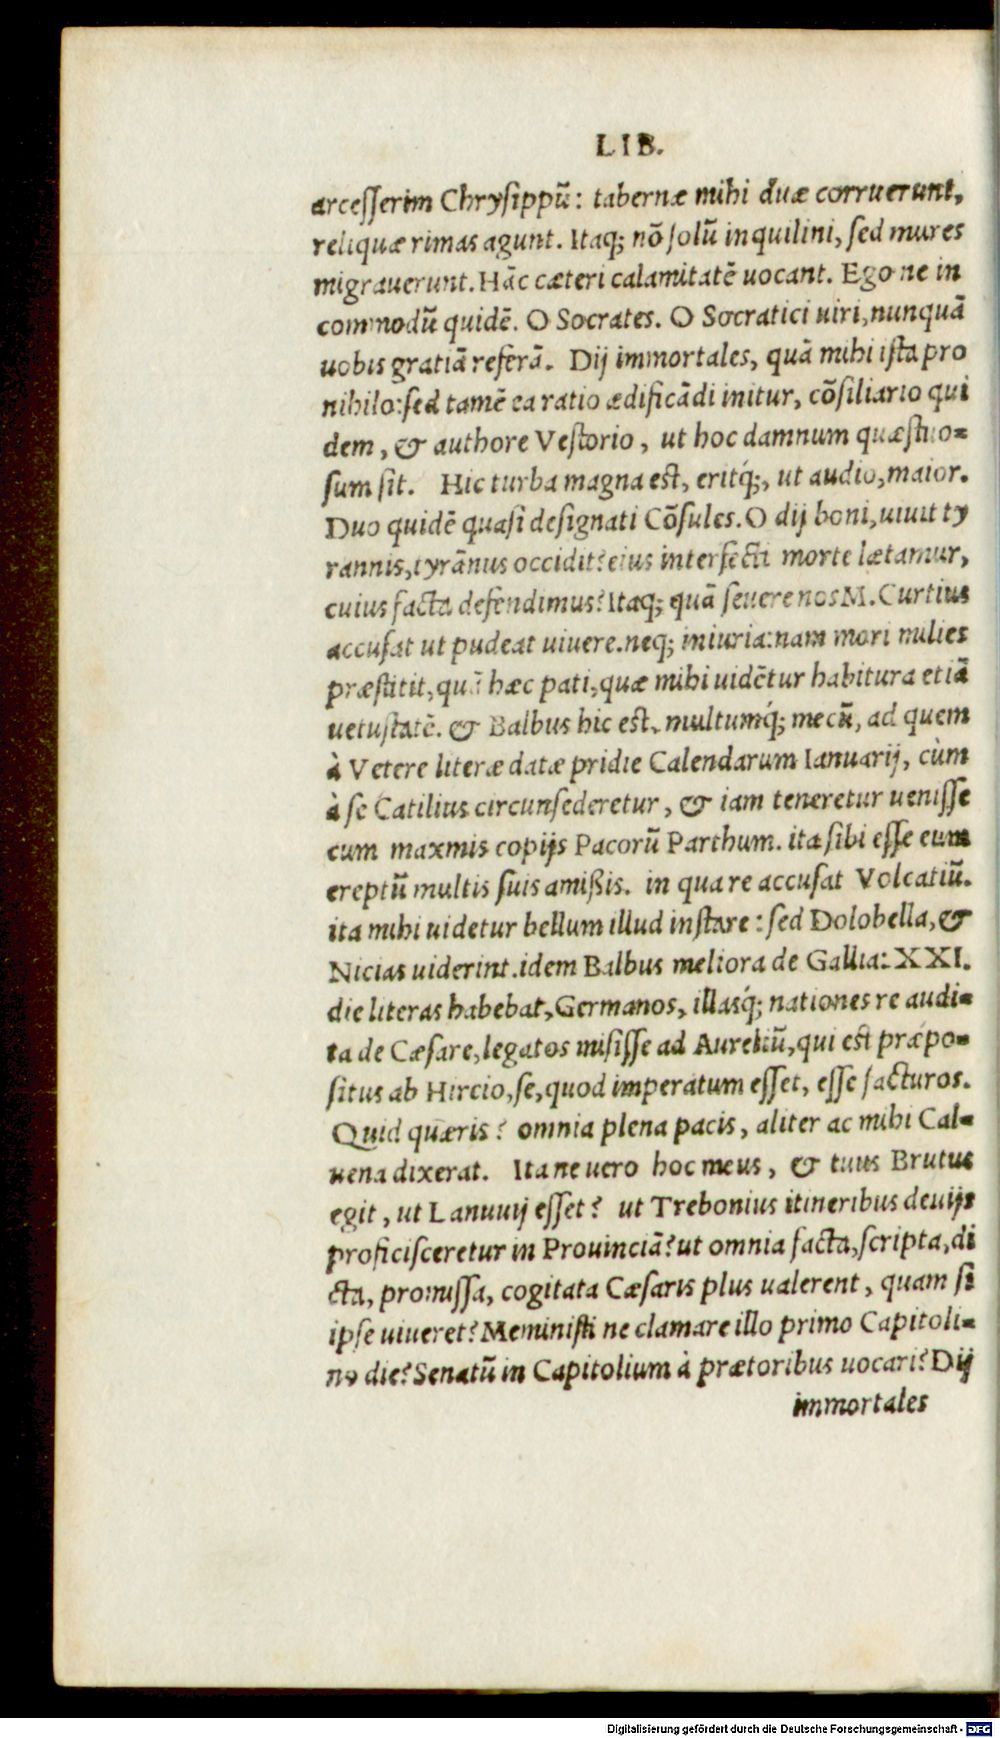 LIB.
arcesserim Chrysippū: tabernæ mihi duæ corruerunt,
reliquæ rimas agunt. Itaq; nō solū inquilini, sed mures
migrauerunt. Hāc cæteri calamitatē uocant. Ego ne in
commodū quidē. O Socrates. O Socratici uiri, nunquā
uobis gratiā referā. Dij immortales, quā mihi ista pro
nihilo: sed tamē ea ratio ædificādi initur, cōsiliario qui
dem, & authore Vestorio, ut hoc damnum quæstuo-
sum sit. Hic turba magna est, eritq́;, ut audio, maior.
Duo quidē quasi designati Cōsules. O dij boni, uiuit ty
rannis, tyrānus occidit? eius interfecti morte lætamur,
cuius facta defendimus? Itaq; quā seuere nos M. Curtius
accusat ut pudeat uiuere. neq; iniuria: nam mori milies
præstitit, quā hæc pati, quæ mihi uidētur habitura etiā
uetustatē. & Balbus hic est, multumq́; mecū, ad quem
à Vetere literæ datæ pridie Calendarum Ianuarij, cùm
à se Catilius circunsederetur, & iam teneretur uenisse
cum maxmis copijs Pacorū Parthum. ita sibi esse eum
ereptū multis suis amißis. in qua re accusat Volcatiū.
ita mihi uidetur bellum illud instare: sed Dolobella, &
Nicias uiderint. idem Balbus meliora de Gallia: XXI.
die literas habebat, Germanos, illasq́; nationes re audi-
ta de Cæsare, legatos misisse ad Aureliū, qui est præpo-
situs ab Hircio, se, quod imperatum esset, esse facturos.
Quid quæris? omnia plena pacis, aliter ac mihi Cal-
uena dixerat. Ita ne uero hoc meus, & tuus Brutus
egit, ut Lanuuij esset? ut Trebonius itineribus deuijs
proficisceretur in Prouinciā? ut omnia facta, scripta, di
cta, promissa, cogitata Cæsaris plus ualerent, quam si
ipse uiueret? Meministi ne clamare illo primo Capitoli-
no die? Senatū in Capitolium à prætoribus uocari? Dij
immortales
Digitalisierung gefördert durch die Deutsche Forschungsgemeinschaft - DFG